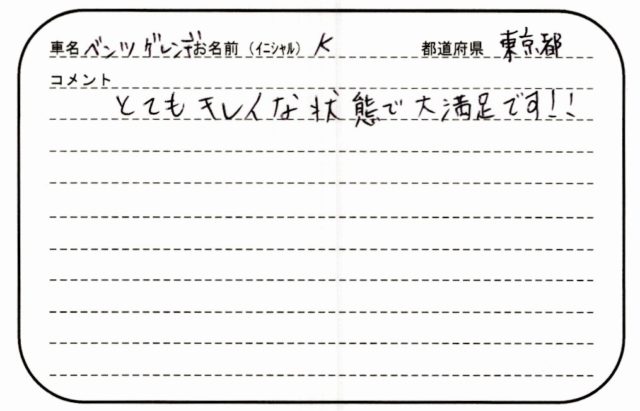 車名 ベンツ ゲレンデ お名前（イニシャル） K 都道府県 東京都
コメント
とてもキレイな状態で大満足です!!